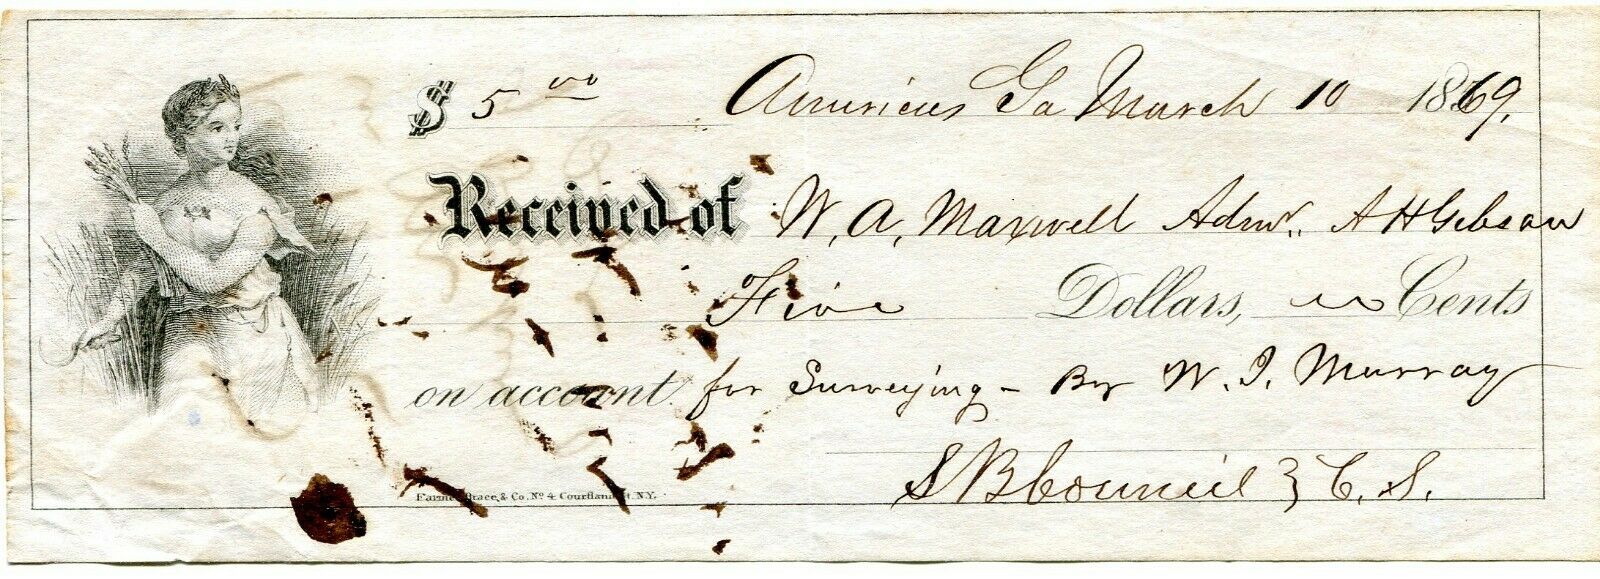 $ 5 00 Americus Ga March 10 1869.
Received of W. A. Maxwell Admr. A H Gibson
Five Dollars, Cents
on account for Surveying - By W. J. Murray
S B Council C. S.
Farmer, Brace, & Co. No 4 Courtlandt St. N.Y.